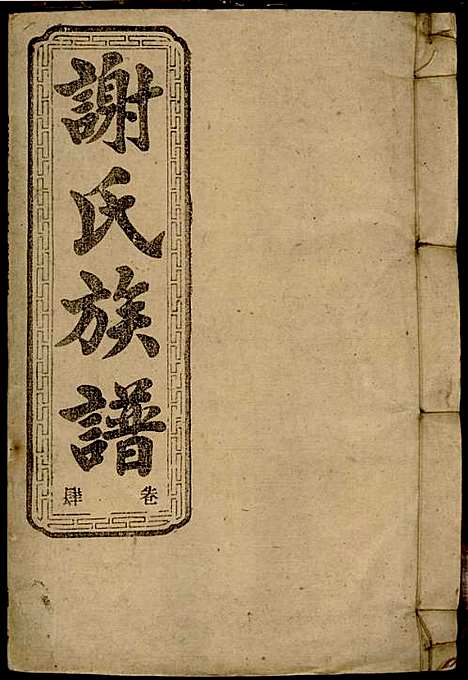 謝氏族譜
卷肆